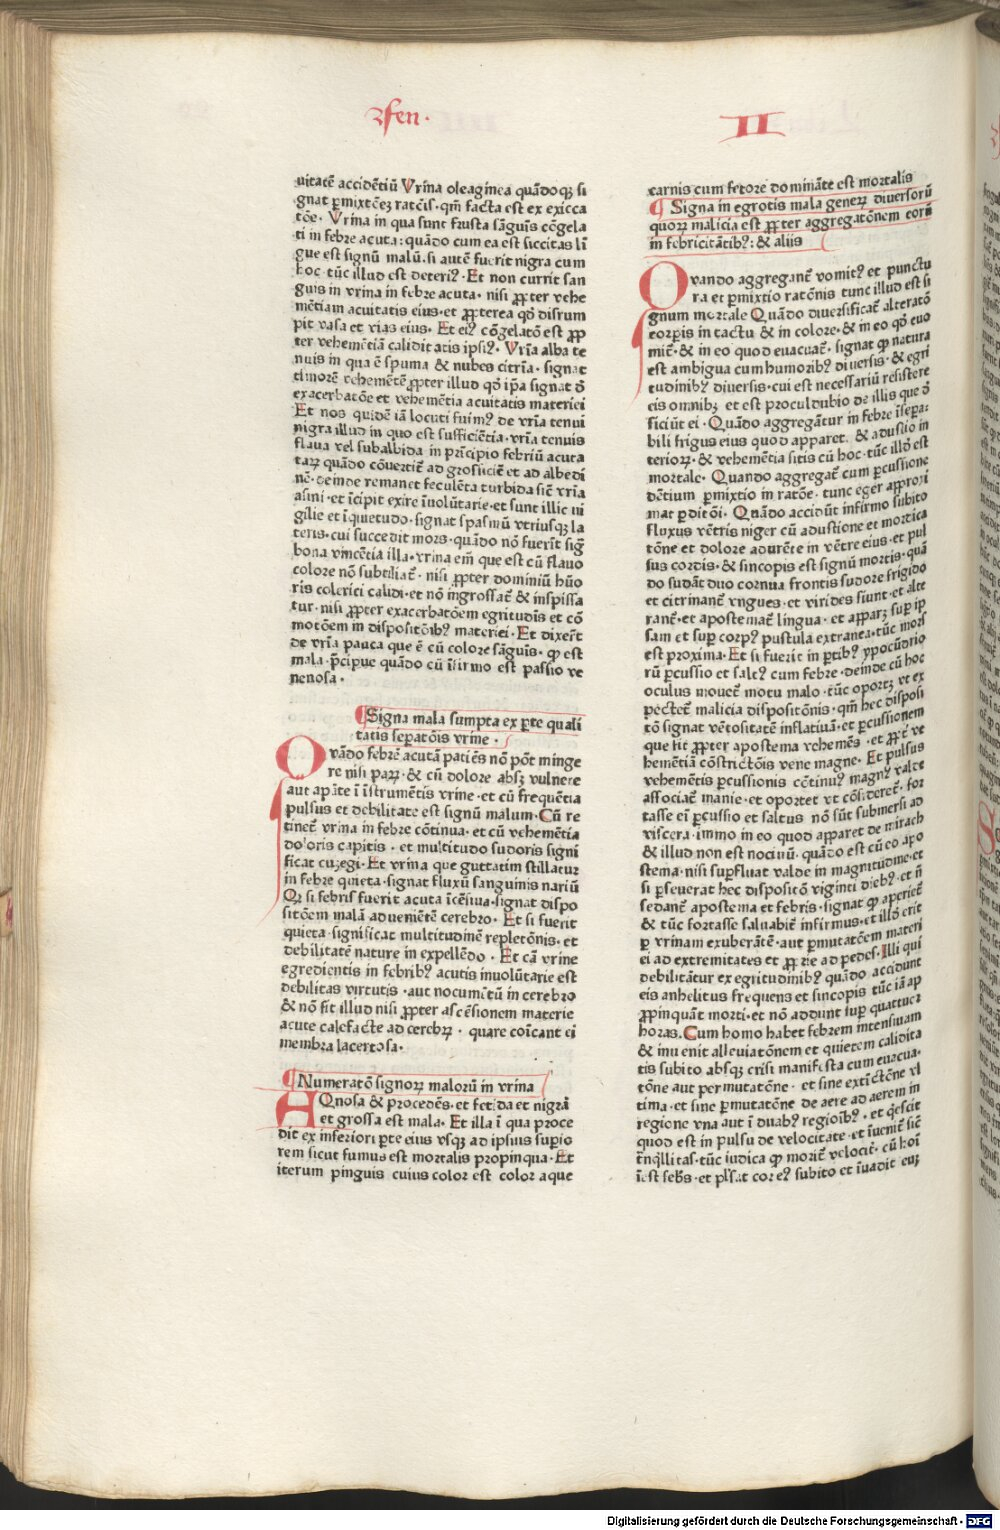 fen.
II
uitatē accidētiū Vrīna oleaginea quādoqȝ si
gnat ꝑmixtōeȝ ratōis· qm̄ facta est ex exicca
tōe· Vrina in qua sunt frusta sāguis cōgela
ti in febre acuta: quādo cum ea est siccitas lī
gue est signū malū. si autē fuerit nigra cum
hoc· tūc illud est deteriꝰ· Et non currit san
guis in vrina in febre acuta· nisi ꝓpter vehe
mētiam acuitatis eius· et ꝓpterea qd̄ disrum
pit vasa et vias eius· Et eiꝰ cōgelatō est ꝓp
ter vehemētiā caliditatis ipsiꝰ· Vrīa alba te
nuis in qua ē spuma & nubes citrīa· signat
timorē vehemētē ꝓpter illud qd̄ ip̄a signat d̄
exacerbatōe et vehemētia acuitatis materiei
Et nos quidē iā locuti fuimꝰ de vrīa tenui
nigra illud in quo est sufficiētia· vrīa tenuis
flaua vel subalbida in prīcipio febriū acuta
taꝝ quādo cōuertit̄ ad grossiciē et ad albedi
nē· deinde remanet feculēta turbida sic̄ vrīa
asini· et īcipit exire īuolūtarie· et sunt illic ui
gilie et īquietudo· signat spasmū vtriusqȝ la
teris· cui succedit mors· quādo nō fuerit siḡ
bona vincētia illa· vrina em̄ que est cū flauo
colore nō subtiliat̄· nisi ꝓpter dominiū hūo
ris colerici calidi· et nō ingrossat̄ & inspissa
tur· nisi ꝓpter exacerbatōem egritudīs et cō
motōem in dispositōibꝰ materiei· Et dixert̄
de vrīa pauca que ē cū colore sāguīs· ꝙ est
mala· p̄cipue quādo cū īfirmo est passio ve
nenosa·
¶ Signa mala sumpta ex ꝑte quali
tatis seꝑatōis vrine·
QVādo febrē acutā patiēs nō pōt minge
re nisi paꝝ· & cū dolore absqȝ vulnere
aut apāte ī īstrumētis vrine· et cū frequētia
pulsus et debilitate est signū malum· Cū re
tinet̄ vrina in febre cōtinua· et cū vehemētia
doloris capitis· et multitudo sudoris signi
ficat cuzegi· Et vrina que guttatim stillatur
in febre quieta· signat fluxū sanguinis nariū
Qd̄ si febris fuerit acuta īcēsiua· signat dispo
sitōem malā adueniētē cerebro· Et si fuerit
quieta· significat multitudinē repletōnis· et
debilitatē nature in expellēdo· Et cā vrine
egredientis in febribꝰ acutis inuolūtarie est
debilitas virtutis· aut nocumētū in cerebro
& nō fit illud nisi ꝓpter ascēsionem materie
acute calefacte ad cerebꝝ· quare cōicant ei
membra lacertosa·
¶ Numeratō signoꝝ maloꝝ in vrina
AQnosa & procedēs· et fetida et nigra
et grossa est mala· Et illa ī qua proce
dit ex inferiori ꝑte eius vsqȝ ad ipsius suꝑio
rem sicut fumus est mortalis propinqua· Et
iterum pinguis cuius color est color aque
carnis cum fetore domināte est mortalis
¶ Signa in egrotis mala geneꝝ diuersorū
quoꝝ malicia est ꝓpter aggregatōnem eorū
in febricitātibꝰ: & aliis
QVando aggregant̄ vomitꝰ et punctu
ra et ꝑmixtio ratōnis tunc illud est si
gnum mortale Quādo diuersificat̄ alteratō
corpis in tactu & in colore· & in eo qd̄ euo
mit̄· & in eo quod euacuat̄· signat ꝙ natura
est ambigua cum humoribꝰ diuersis· & egri
tudinibꝰ diuersis· cui est necessariū resistere
eis omnibꝰ et est proculdubio de illis que d̄
ficiūt ei· Quādo aggregātur in febre īsepa-
bili frigus eius quod apparet. & adustio in
terioꝝ· & vehemētia sitis cū hoc· tūc illd̄ est
mortale· Quando aggregat̄ cum ꝑcussione
dētium ꝑmixtio in ratōe· tunc eger approxi
mat ꝑditōi· Quādo accidūt infirmo subito
fluxus vētris niger cū adustione et mordica
tōne et dolore adurēte in vētre eius· et pul
sus cordis· & sincopis est signū mortis· quā
do sudāt duo cornua frontis sudore frigido
et citrinant̄ vngues· et virides fiunt· et alte
rant̄· et apostemat̄ lingua· et appaꝝ suꝑ ip
sam et suꝑ corpꝰ pustula extranea· tūc mors
est proxima· Et si fuerit in ꝑtibꝰ ypocūdrio
rū ꝑcussio et saltꝰ cum febre· deinde cū hoc
oculus mouet̄ motu malo· tūc oportȝ vt ex
pectet̄ malicia dispositōnis· qm̄ hec disposi
tō signat vētositatē inflatiuā· et ꝑcussionem
que fit ꝓpter apostema vehemēs· et ꝓpt̄ ve
hemētiā cōstrictōis vene magne· Et pulsus
vehemētis ꝑcussionis cōtinuꝰ magnꝰ valde
associat̄ manie· et oportet vt cōsideret̄· for
tasse ei ꝑcussio et saltus nō sūt submersi ad
viscera· immo in eo quod apparet de mirach
& illud non est nociuū· quādo est cū eo apo
stema· nisi suꝑfluat valde in magnitudine· et
si ꝑseuerat hec dispositō viginti diebꝰ· et nō
sedant̄ apostema et febris· signat ꝙ aperiet̄
& tūc fortasse saluabit̄ infirmus· et illd̄ erit
ꝑ vrinam exuberātē· aut ꝑmutatōem materi
ei ad extremitates et ꝓprie ad pedes· Illi qui
debilitātur ex egritudinibꝰ quādo accidunt
eis anhelitus frequens et sincopis tūc iā ap
ꝓpinquāt morti· et nō addunt suꝑ quattuor
horas· Cum homo habet febrem intensiuam
& inuenit alleuiatōnem et quietem calidita
tis subito absqȝ crisi manifesta cum euacua-
tōne aut permutatōne· et sine extīctōne vl
tima· et sine ꝑmutatōne de aere ad aerem in
regione vna aut ī duabꝰ regioībꝰ· et qēscit
quod est in pulsu de velocitate· et īuenit̄ sic̄
trāqllitas· tūc iudica ꝙ moriet̄ velocit̄· cū hoī
īest febris· et pl̄sat cor eꝰ subito et īuadit euȝ
Digitalisierung gefördert durch die Deutsche Forschungsgemeinschaft - DFG